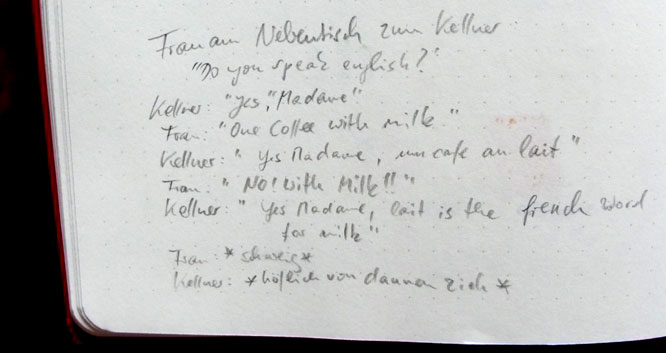 Frau am Nebentisch zum Kellner
"Do you speak english?"
Kellner: "Yes, Madame"
Frau: "One Coffee with milk"
Kellner: "Yes Madame, un cafe au lait"
Frau: "No! With Milk!!"
Kellner: "Yes Madame, lait is the french word
for milk"
Frau: *schweig*
Kellner: *höflich von dannen zieh*